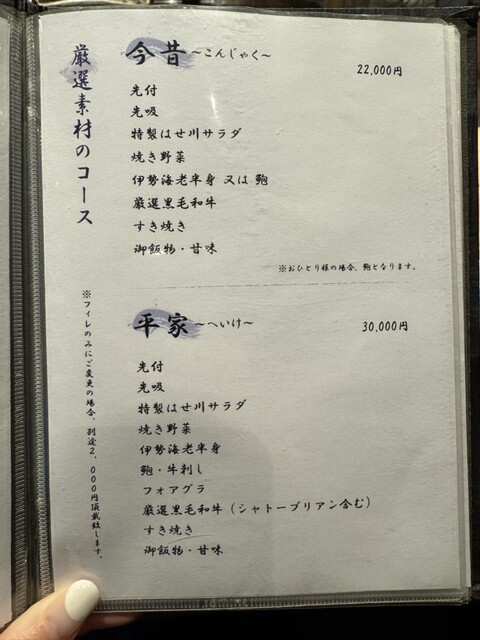 厳選素材のコース
今昔 ~こんじゃく~
22,000円
先付
先吸
特製はせ川サラダ
焼き野菜
伊勢海老半身 又は 鮑
厳選黒毛和牛
すき焼き
御飯物・甘味
※おひとり様の場合、鮑となります。
平家 ~へいけ~
30,000円
先付
先吸
特製はせ川サラダ
焼き野菜
伊勢海老半身
鮑・牛刺し
フォアグラ
厳選黒毛和牛(シャトーブリアン含む)
すき焼き
御飯物・甘味
※フィレのみにご変更の場合、別途2,000円頂戴致します。